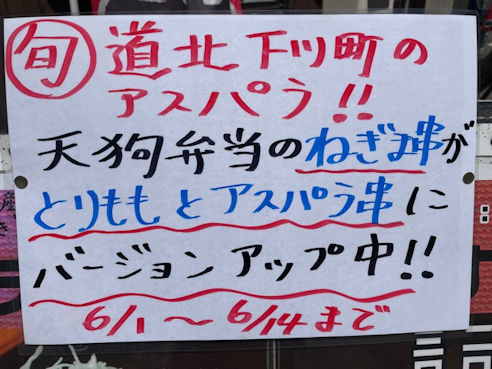 旬 道北下川町の
アスパラ!!
天狗弁当のねぎま串が
とりももとアスパラ串に
バージョンアップ中!!
6/1〜6/14まで